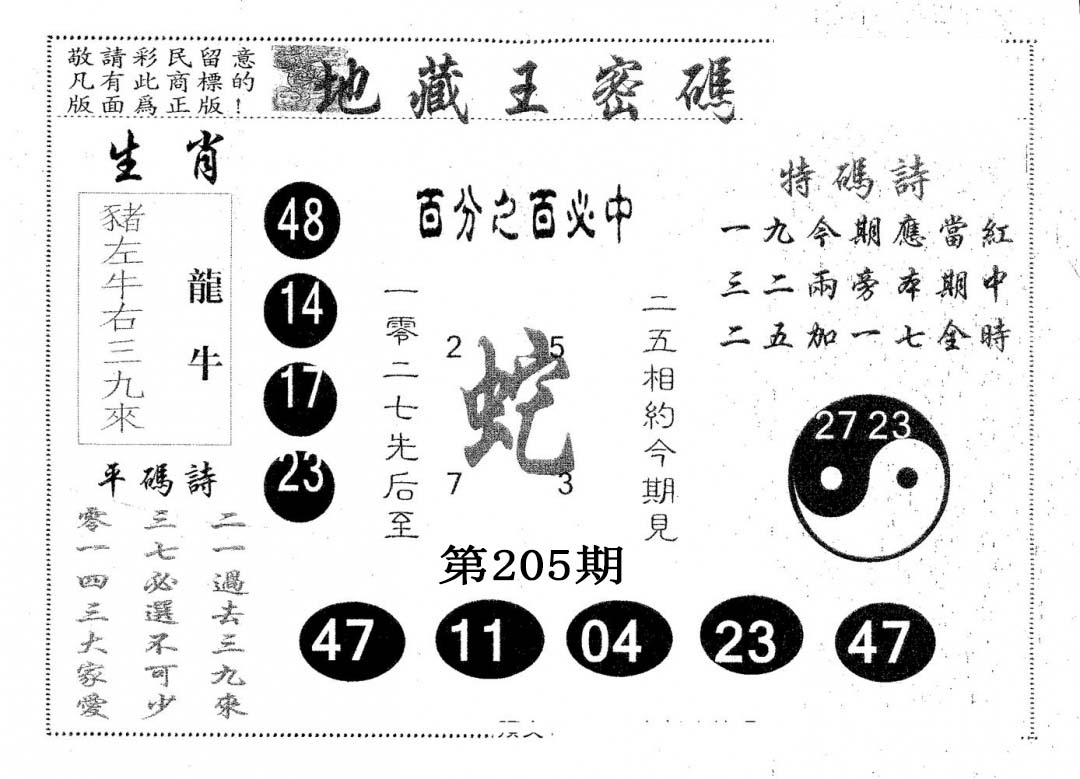 敬請彩民留意
凡有此商標的
版面爲正版！
地藏王密碼
生肖
豬左牛右三九來
龍牛
平碼詩
二一過去三九來
三七必選不可少
零一四三大家愛
48
14
17
23
百分之百必中
一零二七先后至
2 5
蛇
7 3
二五相約今期見
特碼詩
一九今期應當紅
三二兩旁本期中
二五加一七全時
27 23
第205期
47 11 04 23 47